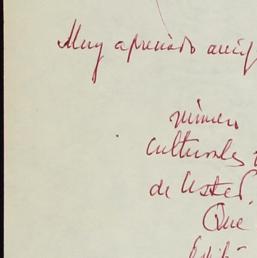 Muy apreciado amig
número
culturales
de Usted.
Que